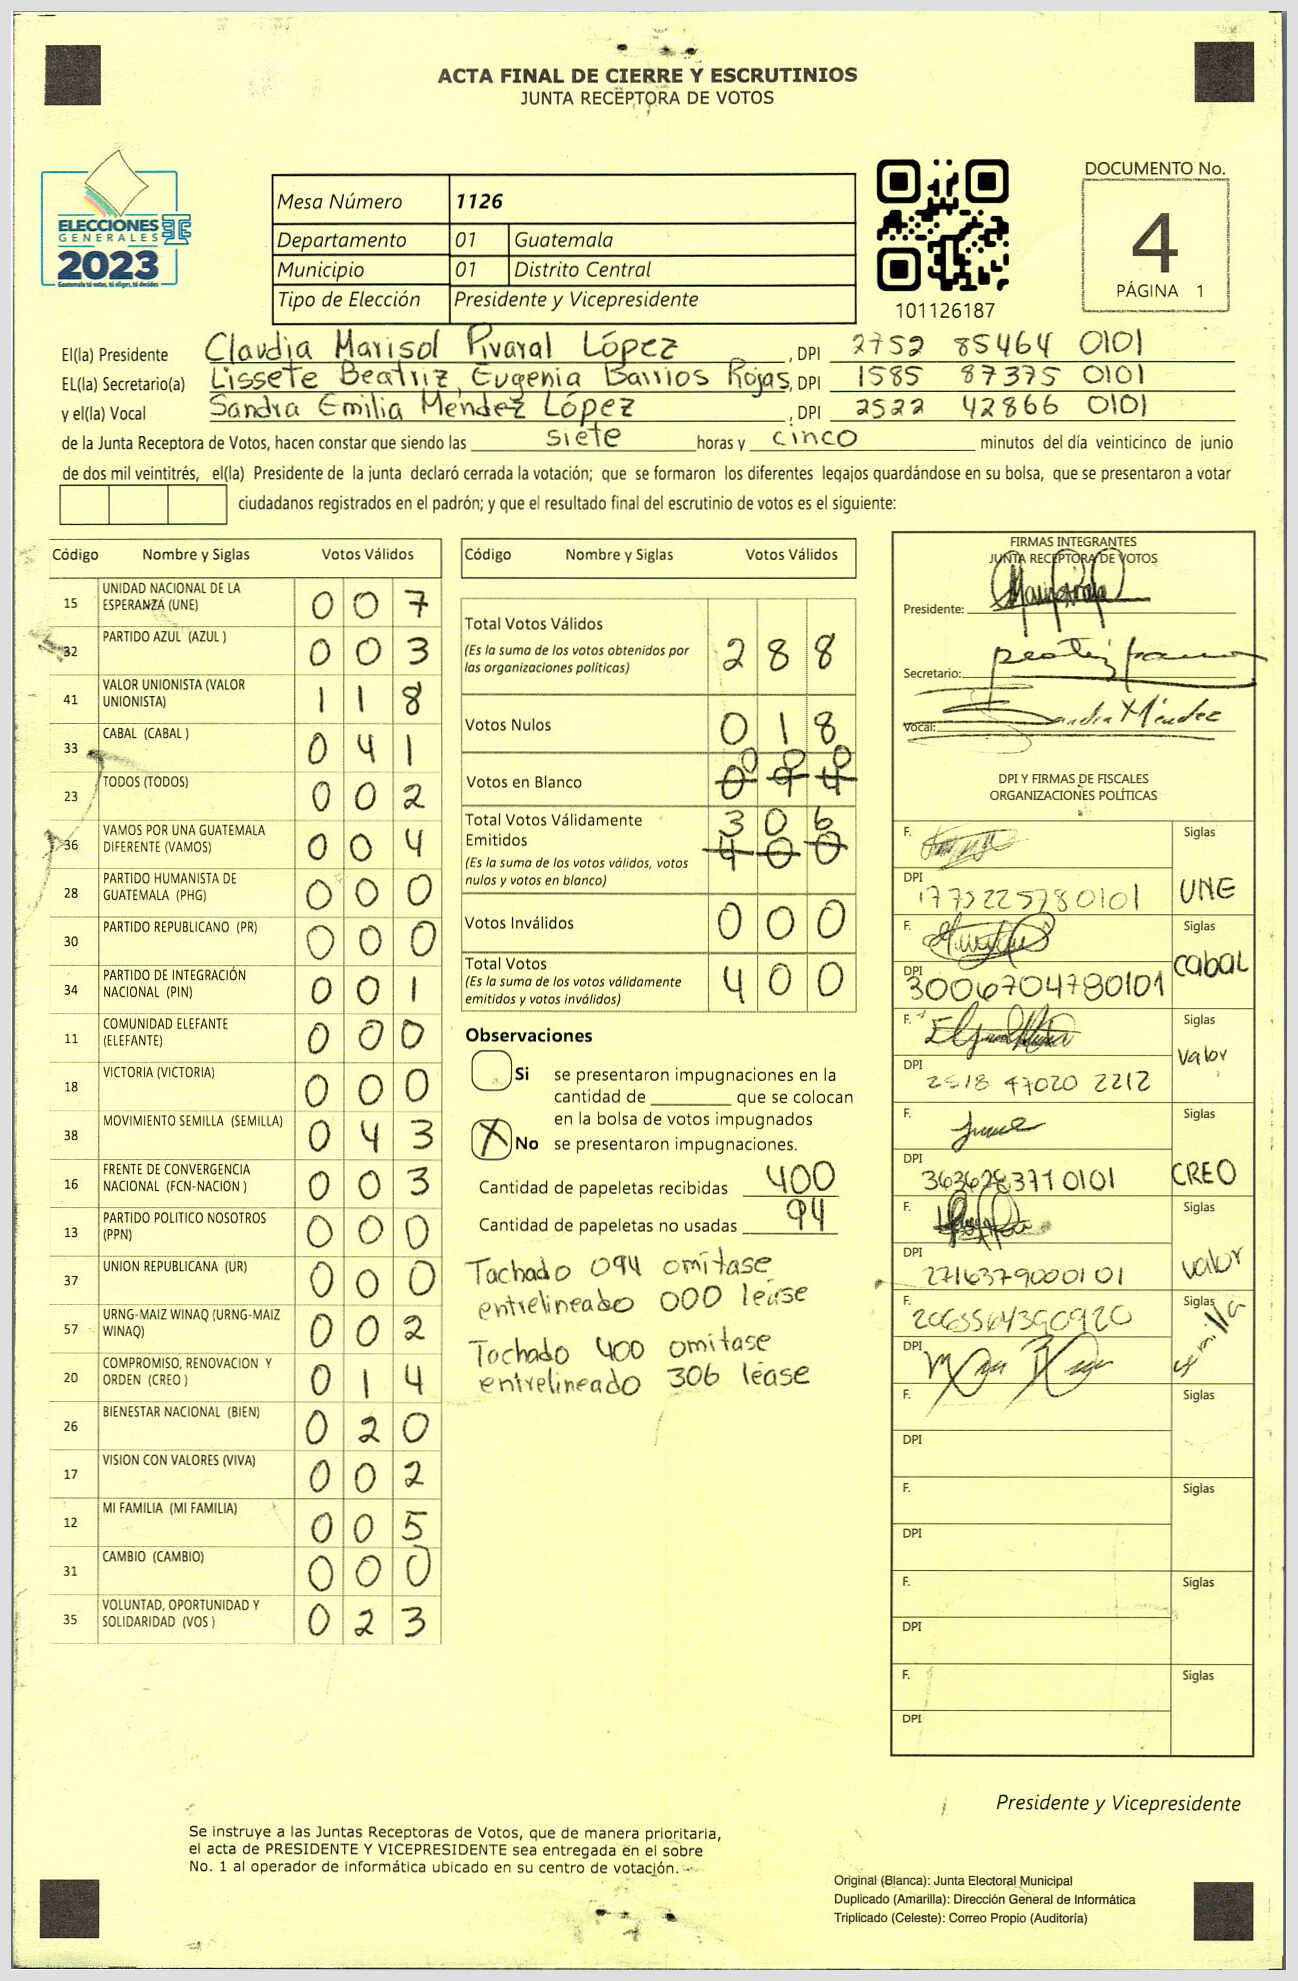 ACTA FINAL DE CIERRE Y ESCRUTINIOS
JUNTA RECEPTORA DE VOTOS
DOCUMENTO No.
4
PÁGINA 1
ELECCIONES
GENERALES
2023
Guatemala tú votas, tú eliges, tú decides
Mesa Número 1126
Departamento 01 Guatemala
Municipio 01 Distrito Central
Tipo de Elección Presidente y Vicepresidente
101126187
El(la) Presidente Claudia Marisol Pivaral López, DPI 2752 85464 0101
EL(la) Secretario(a) Lissete Beatriz Eugenia Barrios Rojas, DPI 1585 87375 0101
y el(la) Vocal Sandra Emilia Méndez López, DPI 2522 42866 0101
de la Junta Receptora de Votos, hacen constar que siendo las siete horas y cinco minutos del día veinticinco de junio
de dos mil veintitrés, el(la) Presidente de la junta declaró cerrada la votación; que se formaron los diferentes legajos quardándose en su bolsa, que se presentaron a votar
ciudadanos registrados en el padrón; y que el resultado final del escrutinio de votos es el siguiente:
Código Nombre y Siglas Votos Válidos
15 UNIDAD NACIONAL DE LA
ESPERANZA (UNE) 0 0 7
32 PARTIDO AZUL (AZUL ) 0 0 3
41 VALOR UNIONISTA (VALOR
UNIONISTA) 1 1 8
33 CABAL (CABAL ) 0 4 1
23 TODOS (TODOS) 0 0 2
36 VAMOS POR UNA GUATEMALA
DIFERENTE (VAMOS) 0 0 4
28 PARTIDO HUMANISTA DE
GUATEMALA (PHG) 0 0 0
30 PARTIDO REPUBLICANO (PR) 0 0 0
34 PARTIDO DE INTEGRACIÓN
NACIONAL (PIN) 0 0 1
11 COMUNIDAD ELEFANTE
(ELEFANTE) 0 0 0
18 VICTORIA (VICTORIA) 0 0 0
38 MOVIMIENTO SEMILLA (SEMILLA) 0 4 3
16 FRENTE DE CONVERGENCIA
NACIONAL (FCN-NACION ) 0 0 3
13 PARTIDO POLITICO NOSOTROS
(PPN) 0 0 0
37 UNION REPUBLICANA (UR) 0 0 0
57 URNG-MAIZ WINAQ (URNG-MAIZ
WINAQ) 0 0 2
20 COMPROMISO, RENOVACION Y
ORDEN (CREO ) 0 1 4
26 BIENESTAR NACIONAL (BIEN) 0 2 0
17 VISION CON VALORES (VIVA) 0 0 2
12 MI FAMILIA (MI FAMILIA) 0 0 5
31 CAMBIO (CAMBIO) 0 0 0
35 VOLUNTAD, OPORTUNIDAD Y
SOLIDARIDAD (VOS ) 0 2 3
Código Nombre y Siglas Votos Válidos
Total Votos Válidos 2 8 8
(Es la suma de los votos obtenidos por
las organizaciones políticas)
Votos Nulos 0 1 8
0 0 0
Votos en Blanco 0 9 4
Total Votos Válidamente 3 0 6
Emitidos 4 0 0
(Es la suma de los votos válidos, votos
nulos y votos en blanco)
Votos Inválidos 0 0 0
Total Votos 4 0 0
(Es la suma de los votos válidamente
emitidos y votos inválidos)
Observaciones
Si se presentaron impugnaciones en la
cantidad de ________ que se colocan
en la bolsa de votos impugnados
X No se presentaron impugnaciones.
Cantidad de papeletas recibidas 400
Cantidad de papeletas no usadas 94
Tachado 094 omitase
entrelineado 000 léase
Tachado 400 omitase
entrelineado 306 léase
FIRMAS INTEGRANTES
JUNTA RECEPTORA DE VOTOS
Presidente:
Secretario:
Vocal: Sandra Méndez
DPI Y FIRMAS DE FISCALES
ORGANIZACIONES POLÍTICAS
F. Siglas
DPI 1775225780101 UNE
F. Siglas
DPI 3006704780101 CABAL
F. Siglas
DPI 2518 47020 2212 Valor
F. Siglas
DPI 3636283710101 CREO
F. Siglas
DPI 2716379000101 Valor
F. 2063564390920 Siglas
DPI Semilla
F. Siglas
DPI
F. Siglas
DPI
F. Siglas
DPI
F. Siglas
DPI
Presidente y Vicepresidente
Se instruye a las Juntas Receptoras de Votos, que de manera prioritaria,
el acta de PRESIDENTE Y VICEPRESIDENTE sea entregada en el sobre
No. 1 al operador de informática ubicado en su centro de votación.
Original (Blanca): Junta Electoral Municipal
Duplicado (Amarilla): Dirección General de Informática
Triplicado (Celeste): Correo Propio (Auditoría)